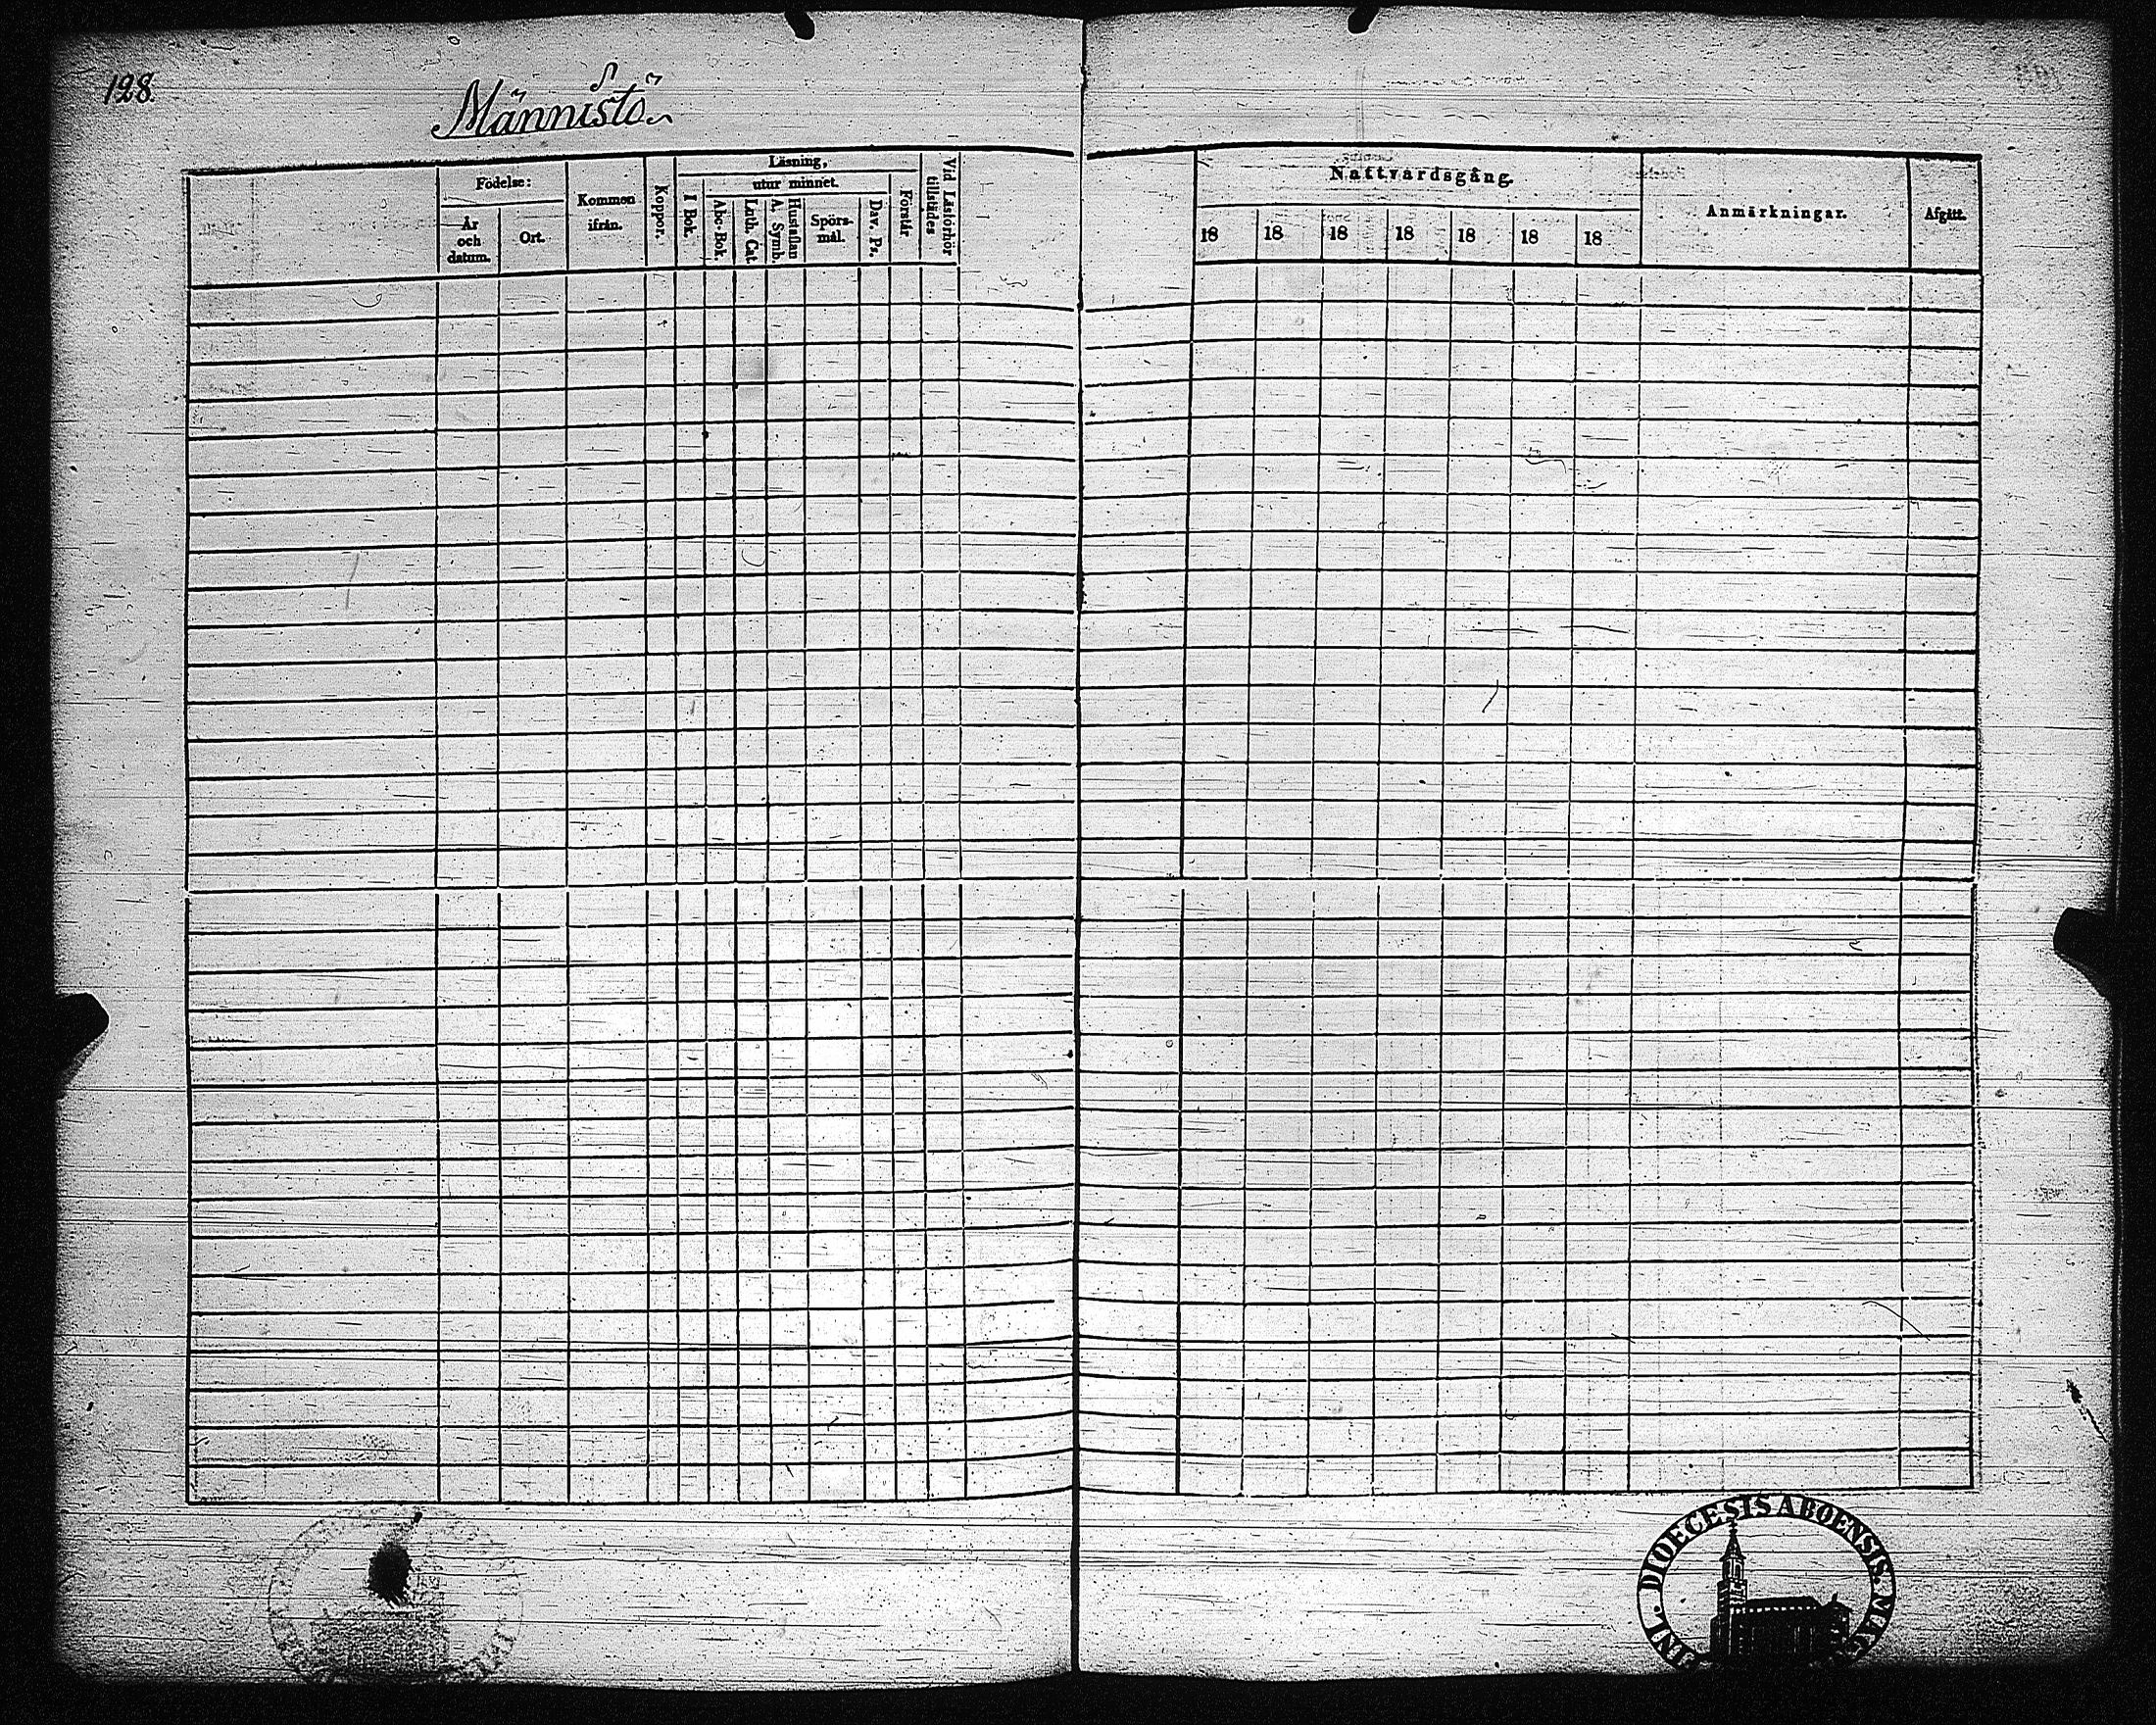 128.
Männistö
Födelse:
År och datum.
Ort.
Kommen ifrån.
Koppor.
Läsning,
I Bok.
utur minnet.
Abc-Bok.
Luth. Cat.
Hustaflan A. Symb.
Spörs-mål.
Dav. Ps.
Förstår
Vid Läsförhör tillstädes
Nattvardsgång.
18 18 18 18 18 18 18
Anmärkningar.
Afgått.
DIOECESIS ABOENSIS.